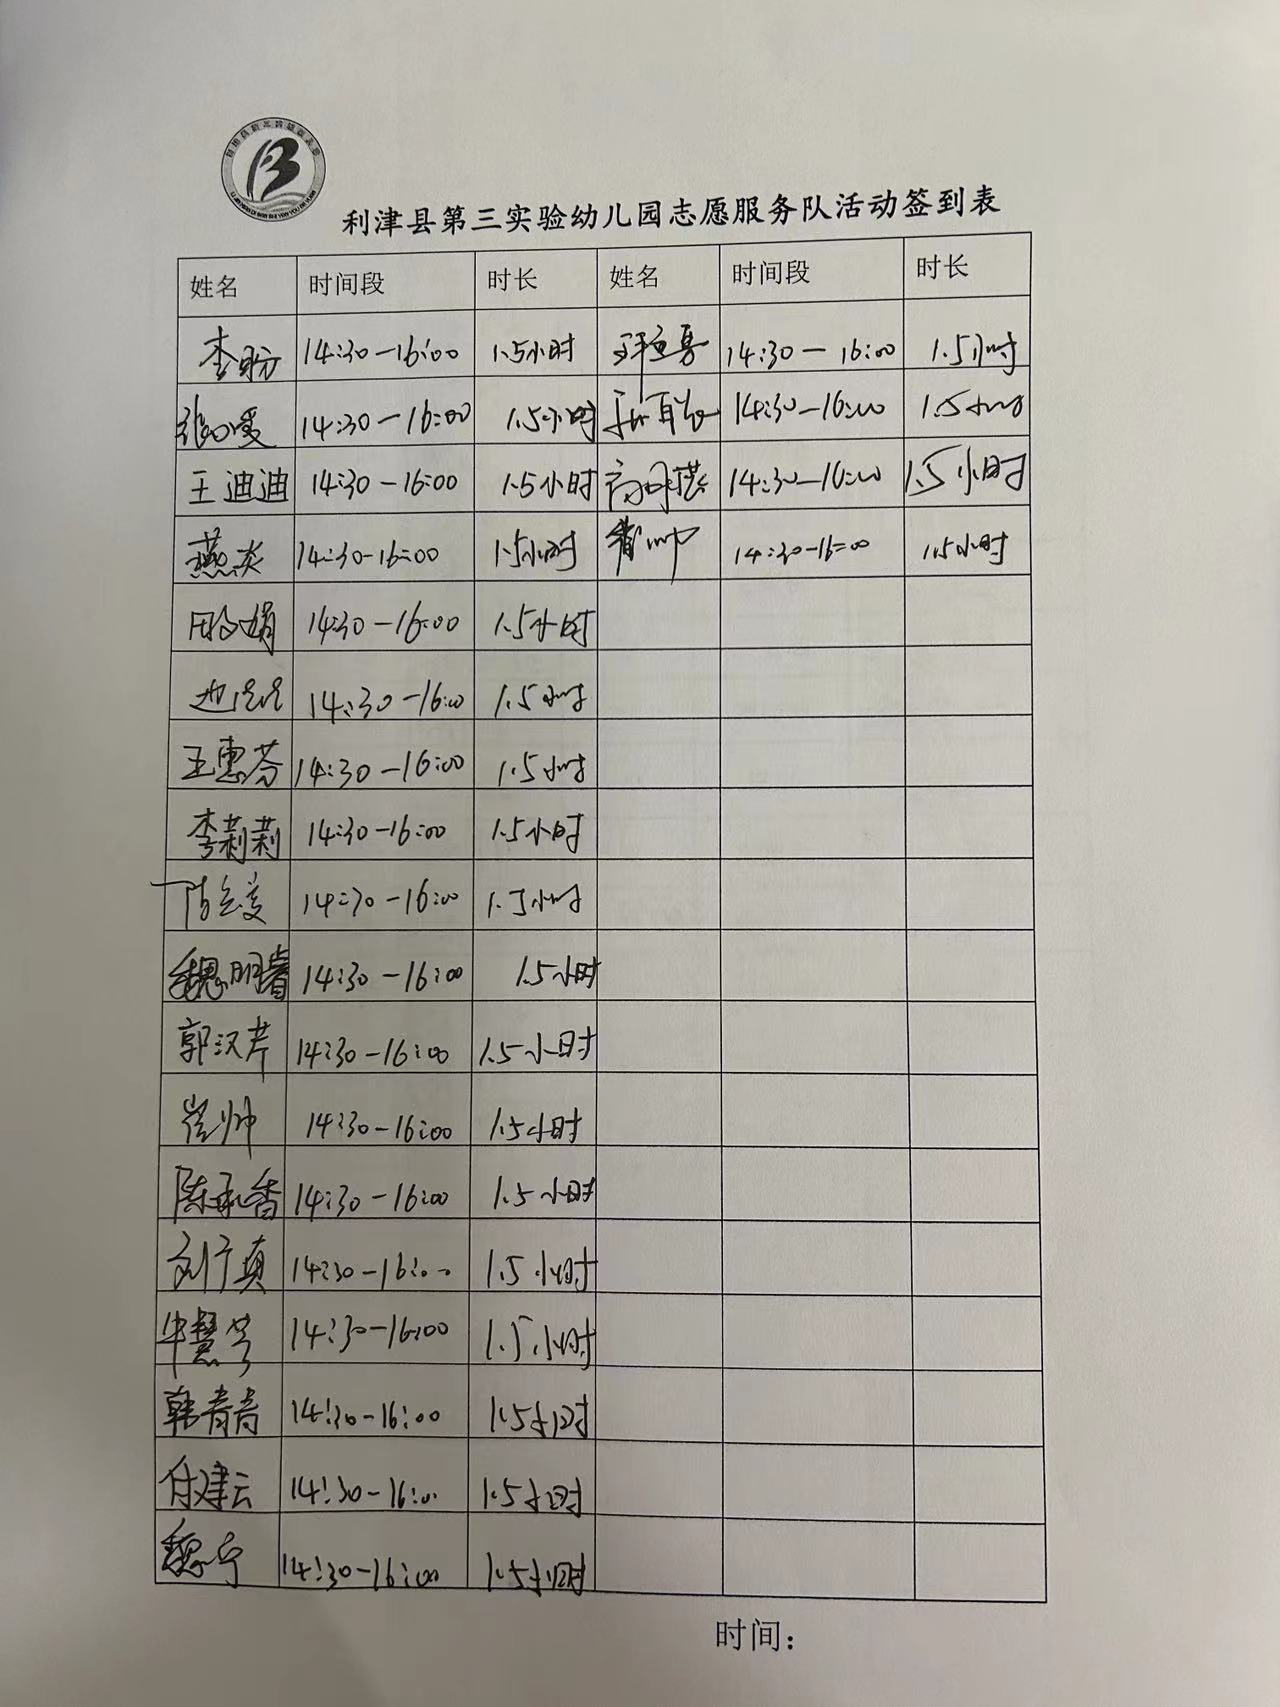 利津县第三实验幼儿园志愿服务队活动签到表
姓名 时间段 时长 姓名 时间段 时长
李盼 14:30-16:00 1.5小时 14:30-16:00 1.5小时
14:30-16:00 1.5小时 14:30-16:00 1.5小时
王迪迪 14:30-16:00 1.5小时 14:30-16:00 1.5小时
燕炎 14:30-16:00 1.5小时 14:30-16:00 1.5小时
14:30-16:00 1.5小时
14:30-16:00 1.5小时
王惠芬 14:30-16:00 1.5小时
李莉莉 14:30-16:00 1.5小时
14:30-16:00 1.5小时
魏明睿 14:30-16:00 1.5小时
郭汉芹 14:30-16:00 1.5小时
崔帅 14:30-16:00 1.5小时
陈永香 14:30-16:00 1.5小时
刘广真 14:30-16:00 1.5小时
14:30-16:00 1.5小时
韩青青 14:30-16:00 1.5小时
付建云 14:30-16:00 1.5小时
魏宁 14:30-16:00 1.5小时
时间：